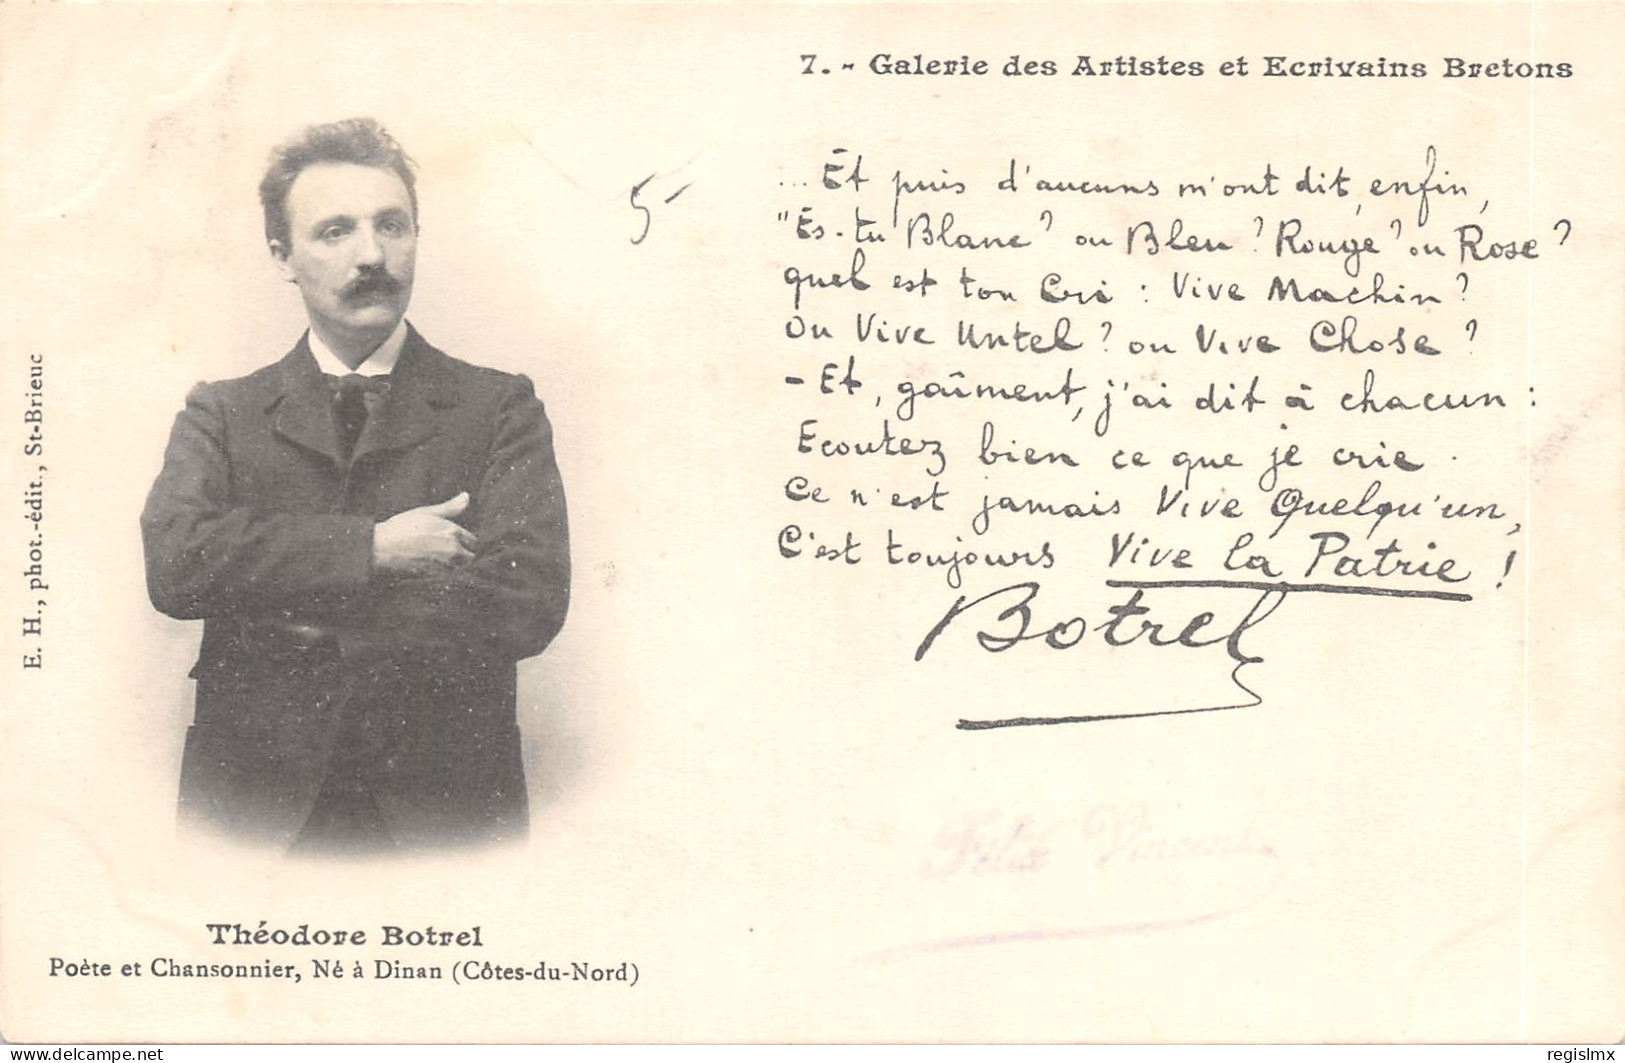 7. - Galerie des Artistes et Ecrivains Bretons
... Et puis d'aucuns m'ont dit, enfin,
"Es-tu Blanc ? ou Bleu ? Rouge ? ou Rose ?
quel est ton Cri : Vive Machin ?
Ou Vive Untel ? ou Vive Chose ?
- Et, gaîment, j'ai dit à chacun :
Ecoutez bien ce que je crie .
Ce n'est jamais Vive Quelqu'un,
C'est toujours Vive la Patrie !
Botrel
5-
E. H., phot.-édit., St-Brieuc
Félix Vincent
Théodore Botrel
Poète et Chansonnier, Né à Dinan (Côtes-du-Nord)
delcampe.net
regislmx